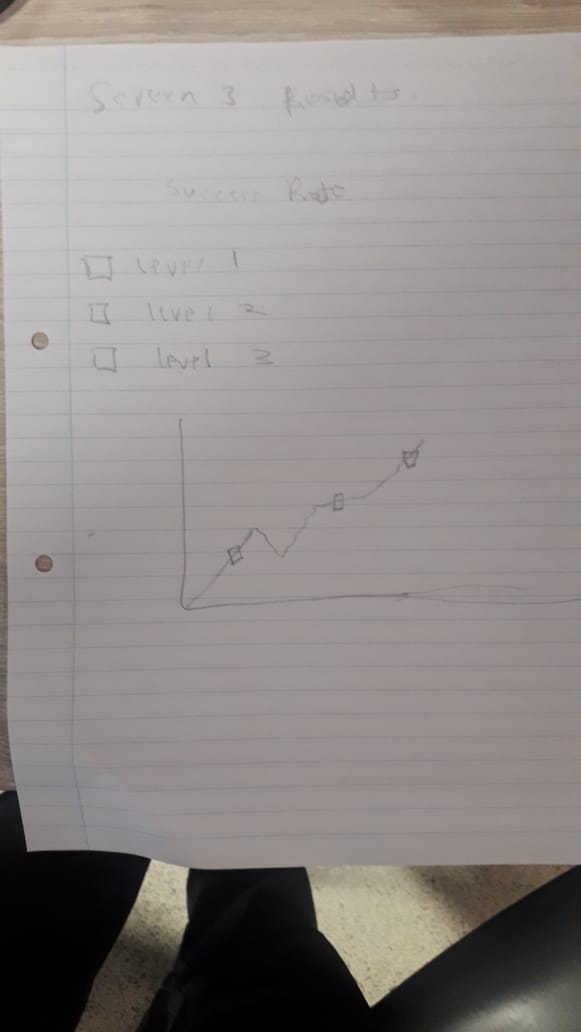 Screen 3 Results
Success Rate
Level 1
level 2
Level 3